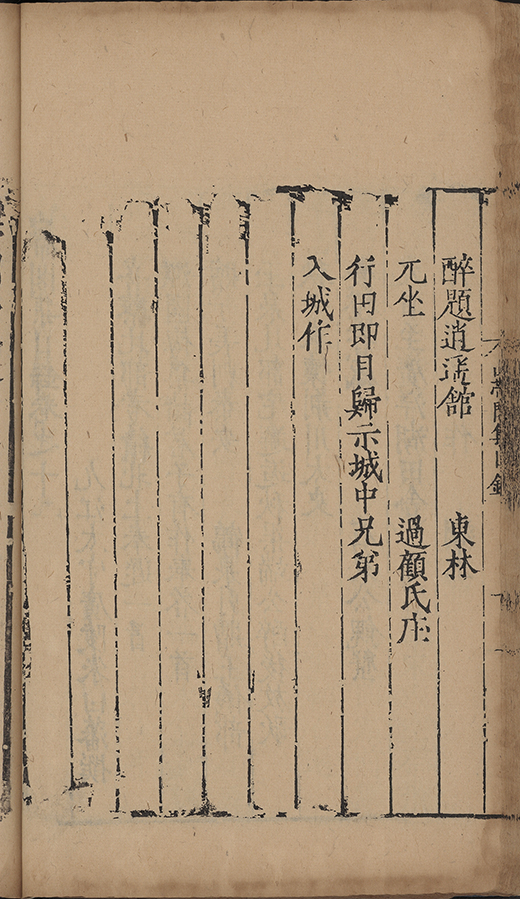 醉題逍遥館　東林
兀坐　過顧氏庄
行田即目歸示城中兄弟
入城作